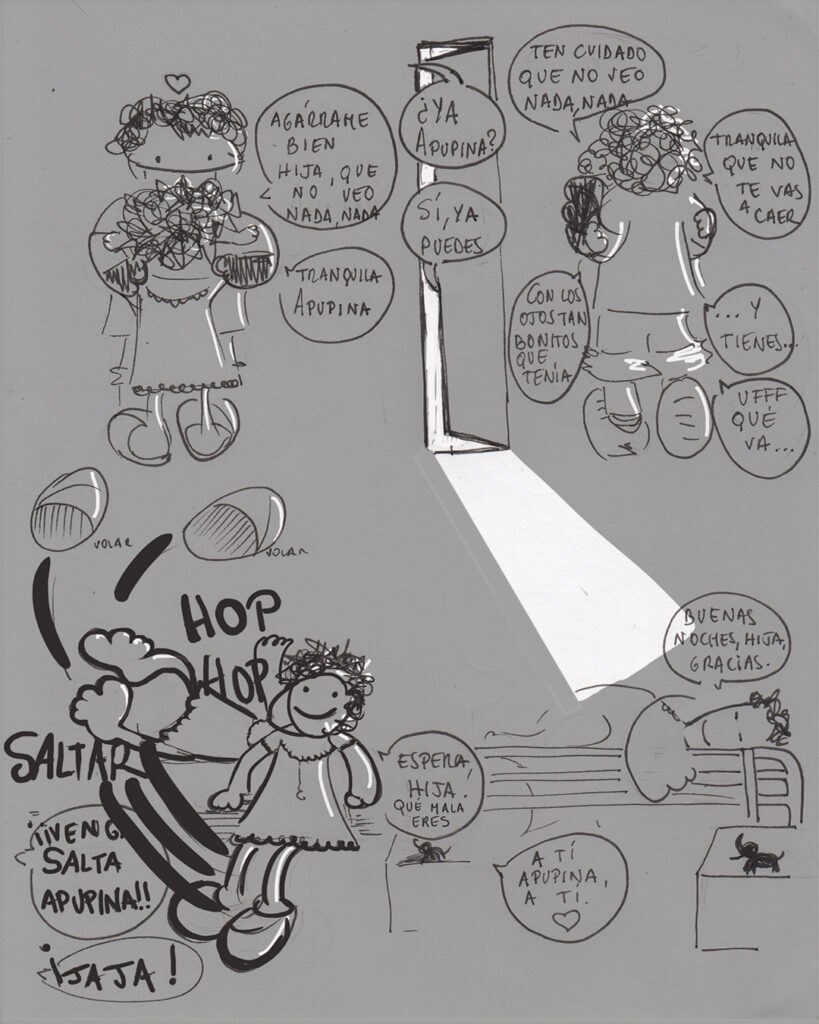 AGÁRRAME
BIEN
HIJA, QUE
NO VEO
NADA, NADA
TRANQUILA
APUPINA
¿YA
APUPINA?
SÍ, YA
PUEDES
TEN CUIDADO
QUE NO VEO
NADA, NADA
TRANQUILA
QUE NO
TE VAS
A CAER
CON LOS
OJOS TAN
BONITOS
QUE
TENÍA
... Y
TIENES...
UFFF
QUÉ
VA...
VOLAR
VOLAR
HOP
HOP
SALTAR
¡¡VENGA
SALTA
APUPINA!!
¡JAJA!
ESPERA,
HIJA.
QUÉ MALA
ERES
BUENAS
NOCHES, HIJA,
GRACIAS.
A TÍ
APUPINA,
A TÍ.